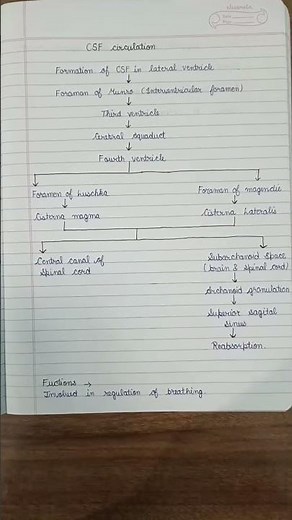 CSF circulation
Formation of CSF in lateral ventricle
Foraman of Munro (Interventricular foramen)
Third ventricle
Cerebral aquaduct
Fourth ventricle
Foramen of luschka
Foraman of magendie
Cisterna magma
Cisterna Lateralis
Central canal of
Spinal cord
Subarchanoid space
(brain & spinal cord)
Archanoid granulation
Superior sagital
sinus
Reabsorption.
Fuctions →
Involved in regulation of breathing.